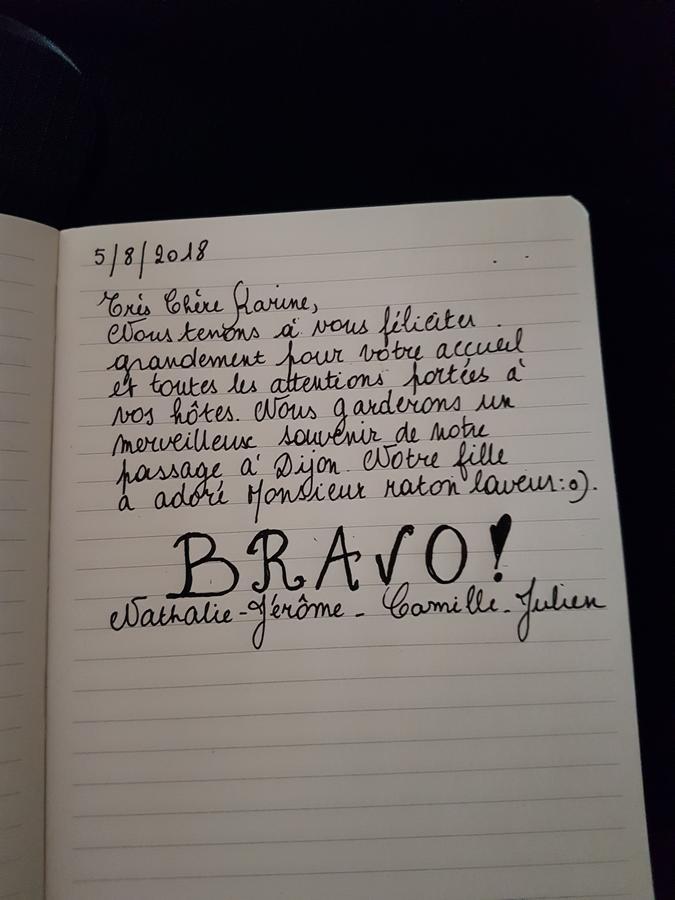 5/8/2018
Très Chère Karine,
Nous tenons à vous féliciter
grandement pour votre accueil
et toutes les attentions portées à
vos hôtes. Nous garderons un
merveilleux souvenir de notre
passage à Dijon. Notre fille
a adoré Monsieur raton laveur :o).
BRAVO!
Nathalie - Jérôme - Camille - Julien